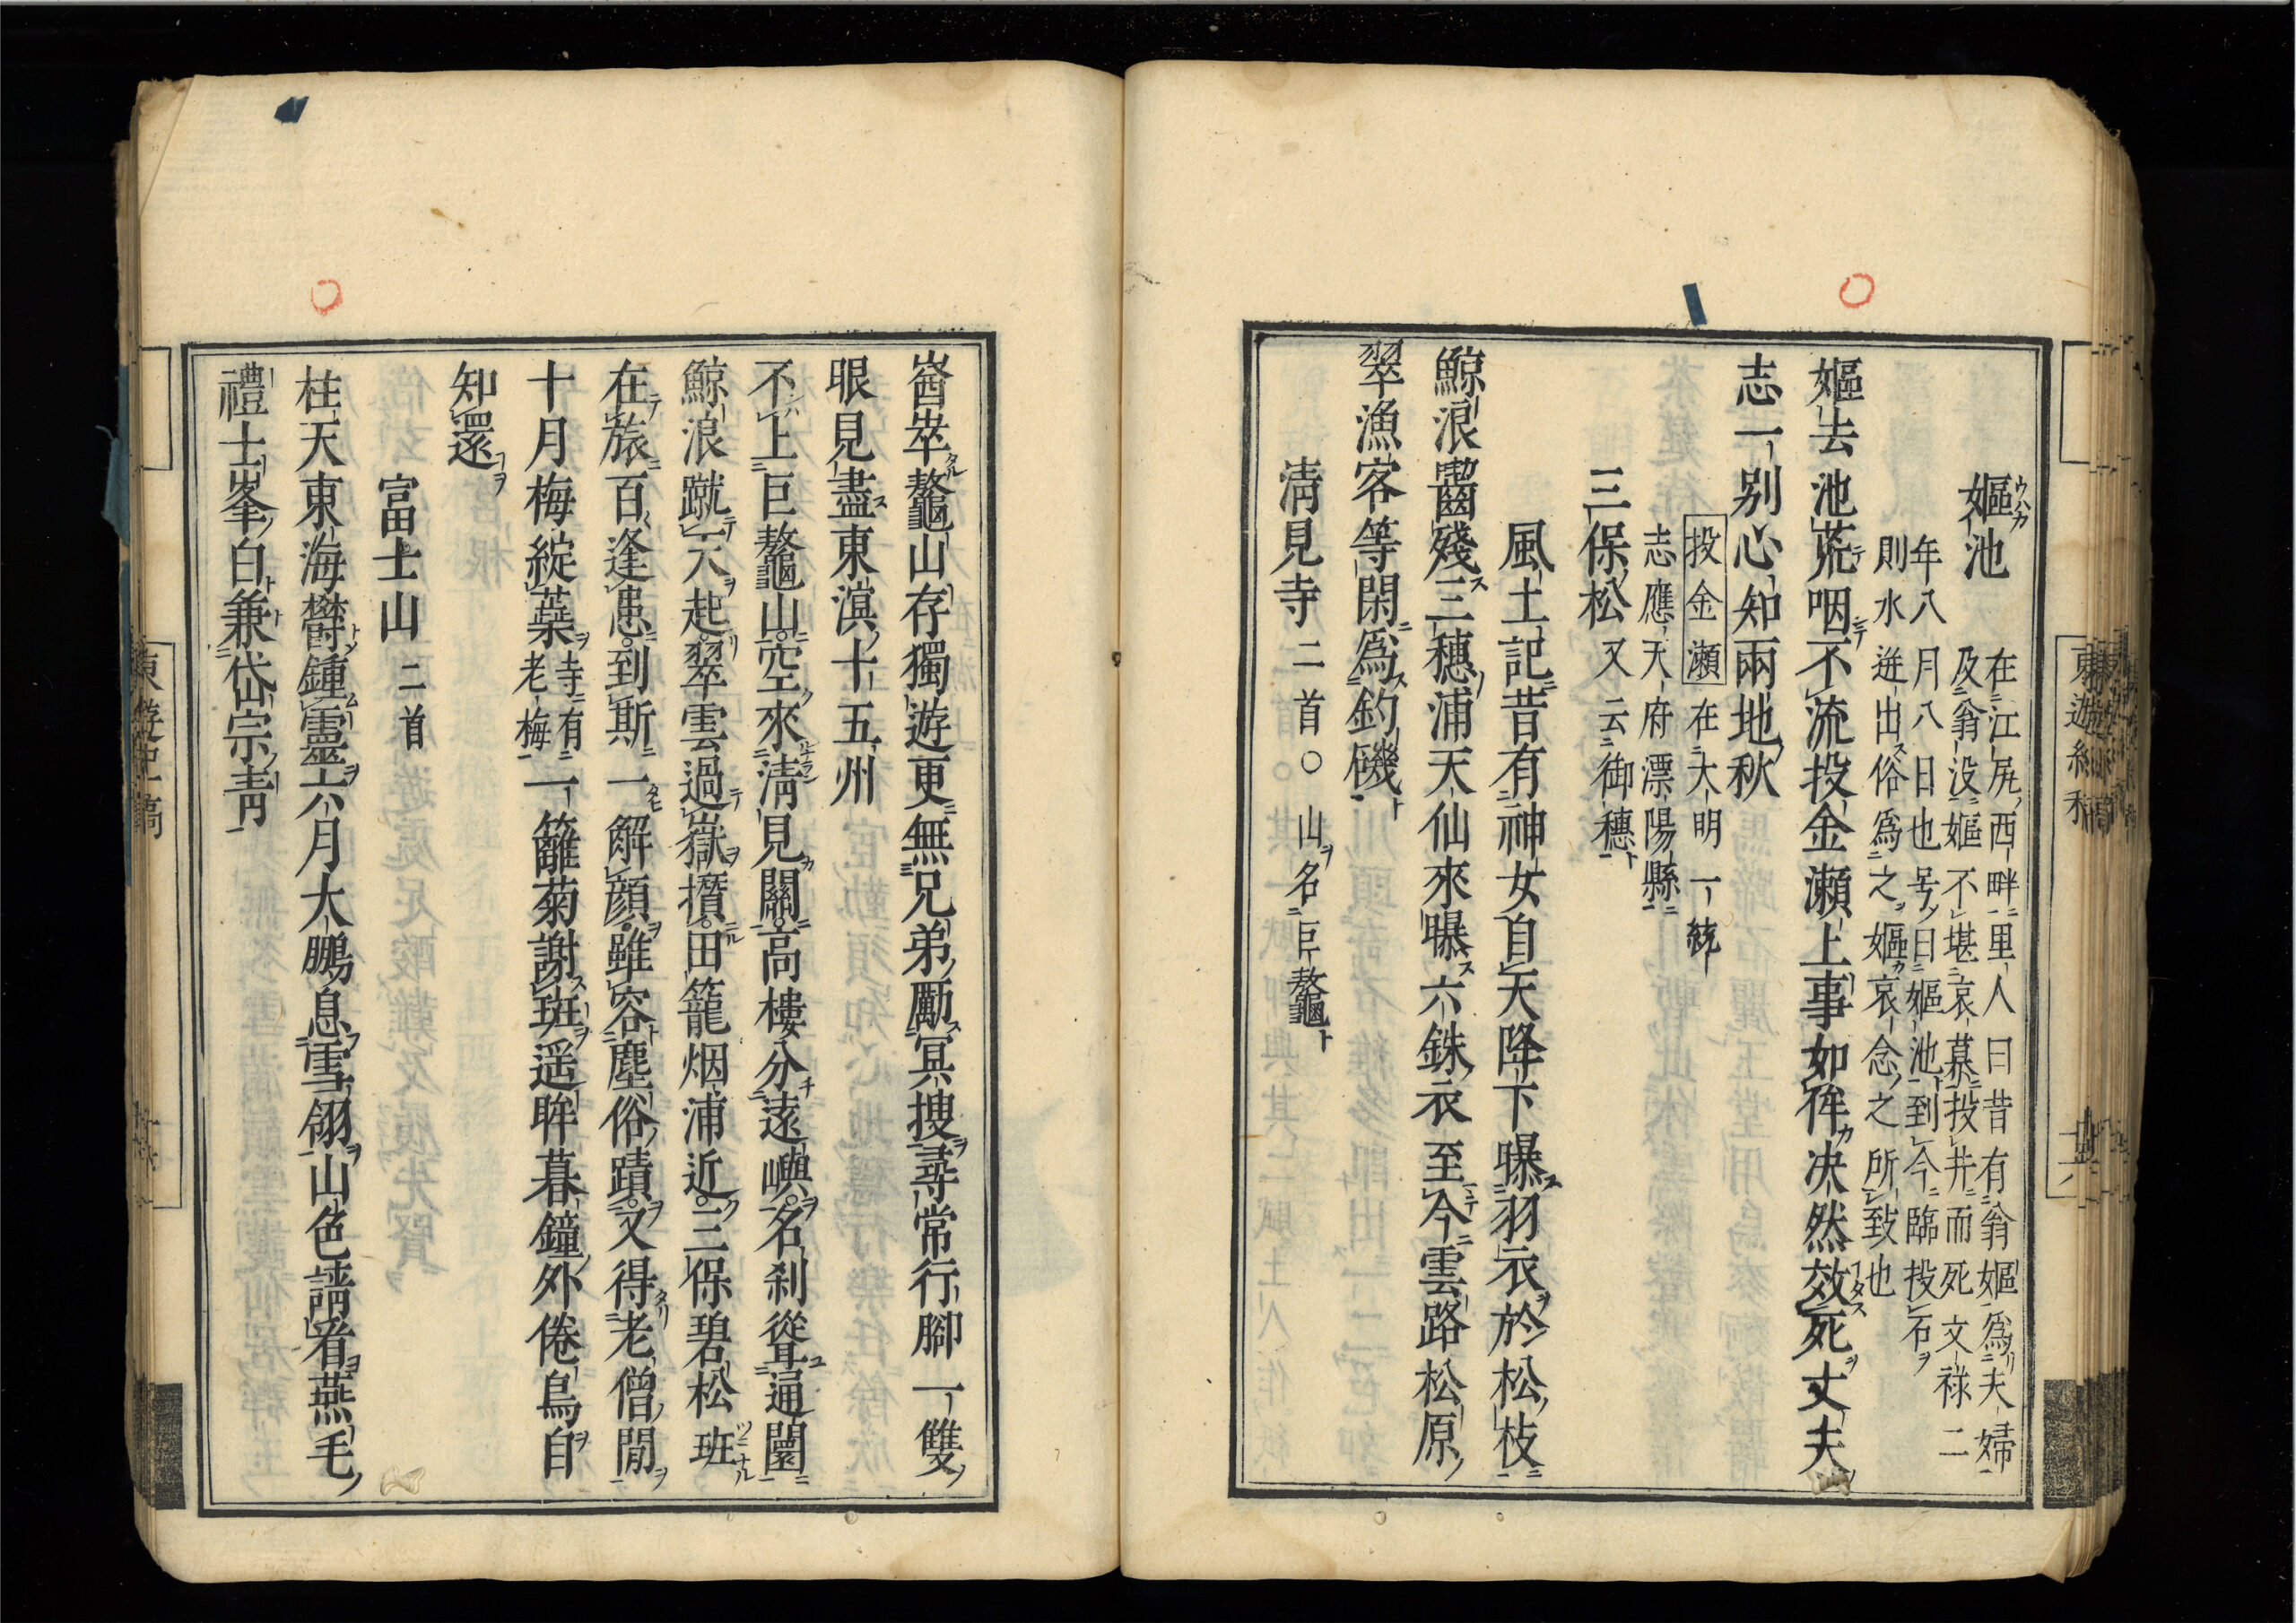 嫗池
在江尻西畔里人曰昔有翁嫗爲夫婦
及翁没嫗不堪哀慕投井而死文禄二
年八月八日也号曰嫗池到今臨投石
則水迸出俗爲之嫗哀念之所致也
嫗去池荒咽不流投金瀬上事如侔决然效死丈夫
志一別心知兩地秋
投金瀬在大明一統
志應天府漂陽縣
三保松又云御穗
風土記昔有神女自天降下曝羽衣於松枝
鯨浪齧殘三穗浦天仙來曝六銖衣至今雲路松原
翠漁客等閑爲釣磯
淸見寺二首〇山名巨鼇
崷崒鼇山存獨遊更無兄弟勵冥搜尋常行脚一雙
眼見盡東溟十五州
不上巨鼇山空來淸見關高樓分遠嶼名刹聳通闤
鯨浪蹴天起翠雲過嶽攢田籠烟浦近三保碧松班
在旅百逢患到斯一解顔雖容塵俗蹟又得老僧閒
十月梅綻葉寺有
老梅一籬菊謝斑遥眸暮鐘外倦鳥自
知還
富士山二首
柱天東海欝鍾靈六月大鵬息雪翎山色請看燕毛
禮士峯白兼岱山宗靑